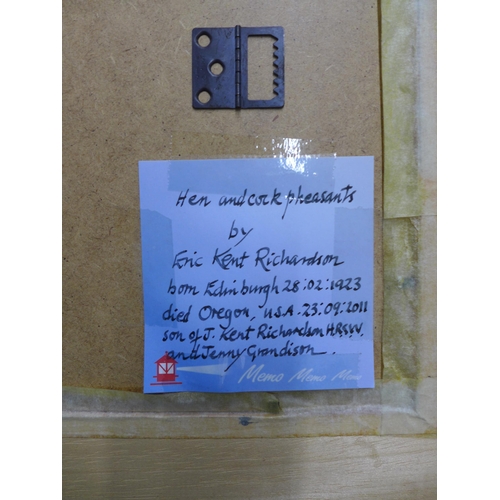 Hen and cock pheasants
by
Eric Kent Richardson
born Edinburgh 28:02:1923
died Oregon, U.S.A. 23:09:2011
son of J. Kent Richardson H.R.S.W.
and Jenny Grandison.
Memo Memo Memo